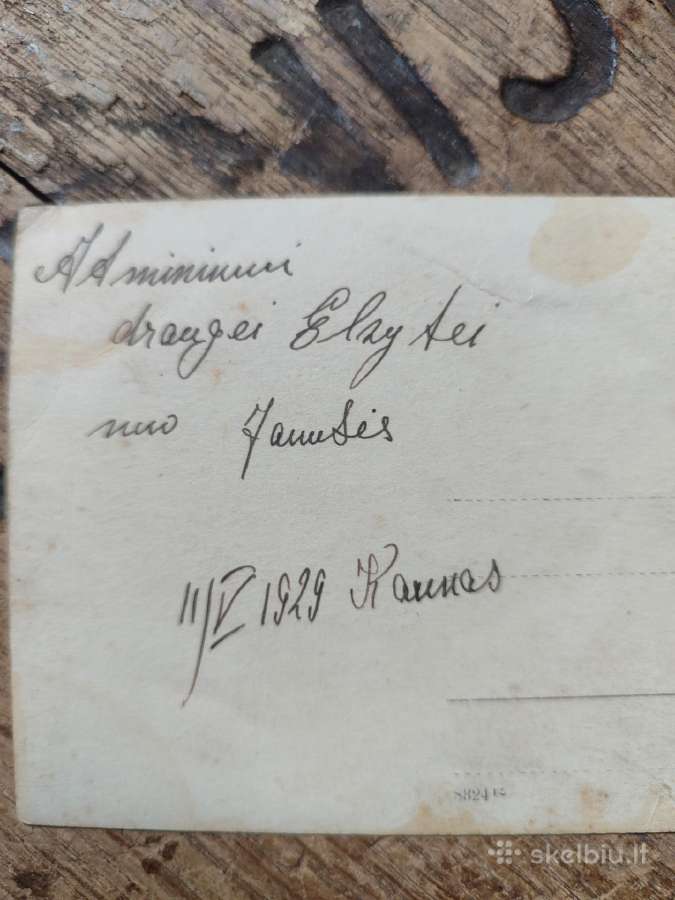 Atminimui
draugei Elzytei
nuo
11/V 1929 Kaunas
skelbiu.lt